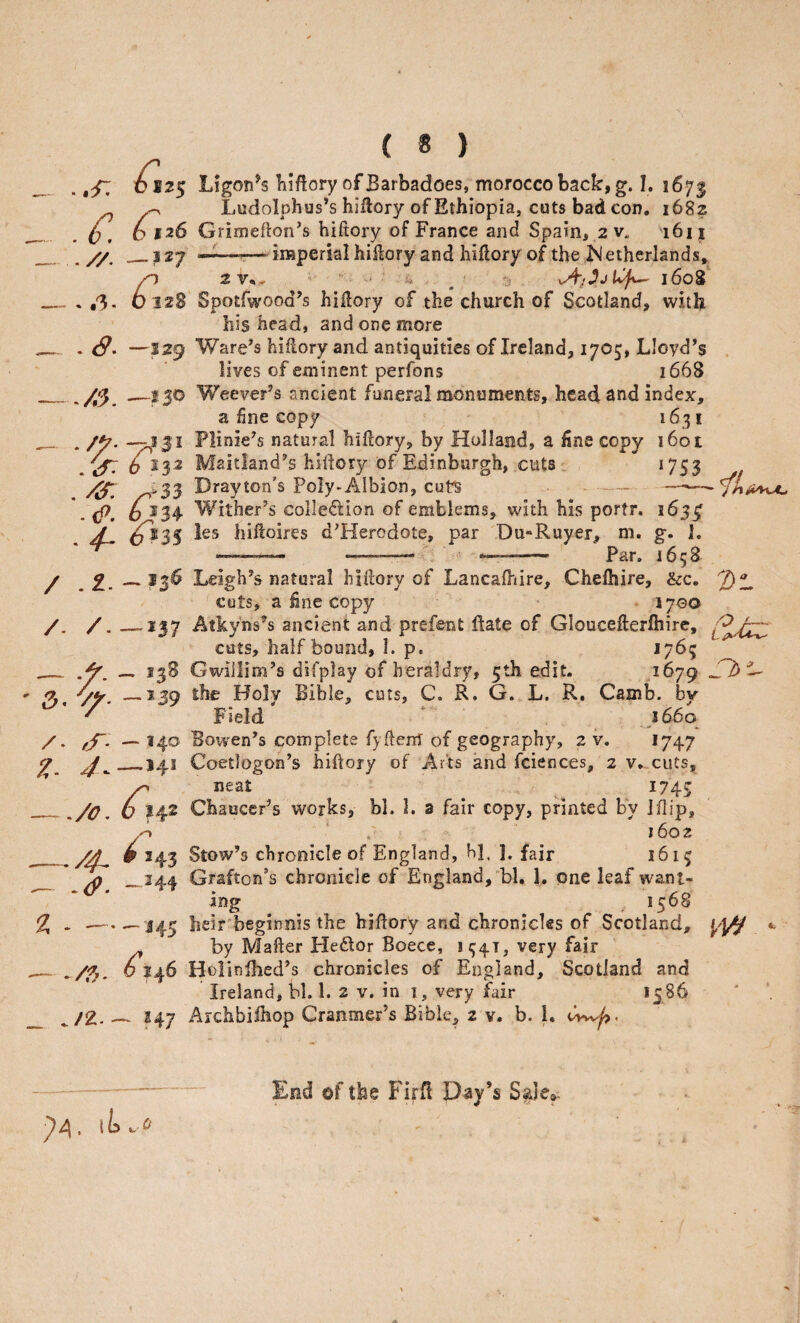 ( 8 )
. 5. 6 125 Ligon's hiſtory of Barbadoes, morocco back, g. l. 1673
Ludolphus's hiſtory of Ethiopia, cuts bad con. 1682
. 6. 6 126 Grimeſton's hiſtory of France and Spain, 2 v. 1611
. 11. — 127 ——— imperial hiſtory and hiſtory of the Netherlands,
2 v. 1608
. 3. 6 128 Spotſwood's hiſtory of the church of Scotland, with
his head, and one more
. 8. —129 Ware's hiſtory and antiquities of Ireland, 1705, Lloyd's
lives of eminent perſons 1668
. 13. —130 Weever's ancient funeral monuments, head and index,
a fine copy 1631
. 17. —131 Plinie's natural hiſtory, by Holland, a fine copy 1601
. 5. 6 132 Maitland's hiſtory of Edinburgh, cuts 1753
. 15. 133 Drayton's Poly-Albion, cuts ——
. 9. 6 134 Wither's collection of emblems, with his portr. 1635
. 4. 6 135 les hiſtoires d'Herodote, par Du-Ruyer, m. g. l.
——— ——— ——— Par. 1658
1 . 2. — 136 Leigh's natural hiſtory of Lancaſhire, Cheſhire, &c.
cuts, a fine copy 1700
1. 1. — 137 Atkyns's ancient and preſent ſtate of Glouceſterſhire,
cuts, half bound, l. p. 1765
. 7. — 138 Gwillim's diſplay of heraldry, 5th edit. 1679
3. 17. — 139 the Holy Bible, cuts, C. R. G. L. R. Camb. by
Field 1660
1. 5. — 140 Bowen's complete ſyſtem of geography, 2 v. 1747
2. 4. — 141 Coetlogon's hiſtory of Arts and ſciences, 2 v. cuts,
neat 1745
. 10. 6 142 Chaucer's works, bl. l. a fair copy, printed by Iſlip,
1602
. 14. 143 Stow's chronicle of England, bl. l. fair 1615
. 9. —144 Grafton's chronicle of England, bl. l. one leaf want-
ing 1568
2 . — . — 145 heir beginnis the hiſtory and chronicles of Scotland,
by Maſter Hector Boece, 1541, very fair
. 13. 6 146 Holinſhed's chronicles of England, Scotland and
Ireland, bl. l. 2 v. in 1, very fair 1586
. 12. — 147 Archbiſhop Cranmer's Bible, 2 v. b. l. imp.
End of the Firſt Day's Sale.
74. 16. 0